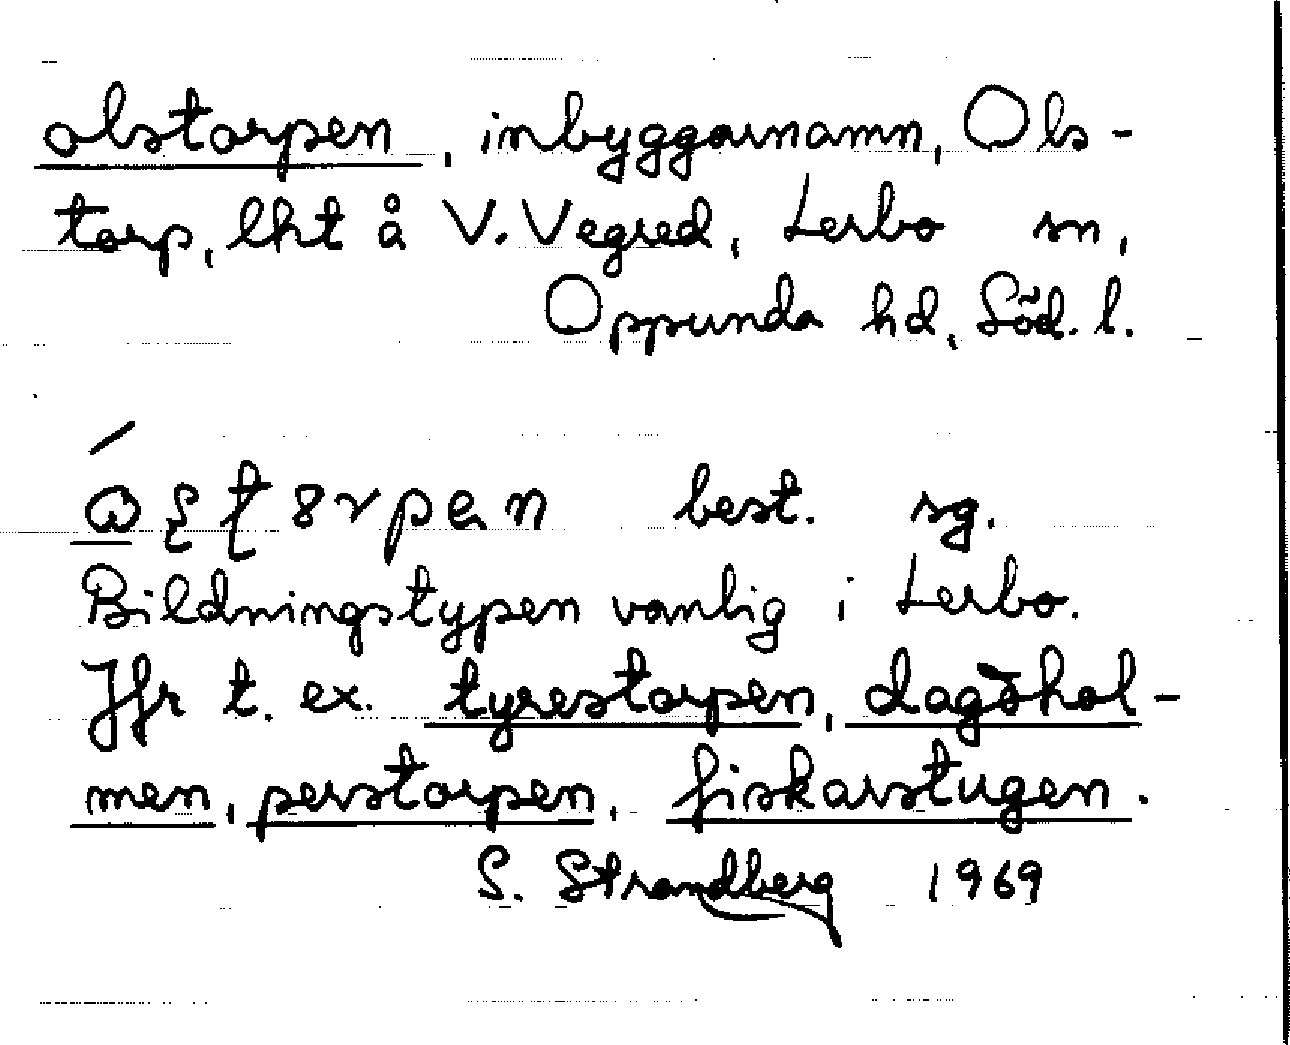 olstorpen, inbyggarnamn, Ols-
torp, lht å V. Vegred, Lerbo sn,
Oppunda hd, Söd. l.
best. sg.
Bildningstypen vanlig i Lerbo.
Jfr t. ex. tyrestorpen, dagöhol-
men, perstorpen, fiskarstugen.
S. Strandberg 1969